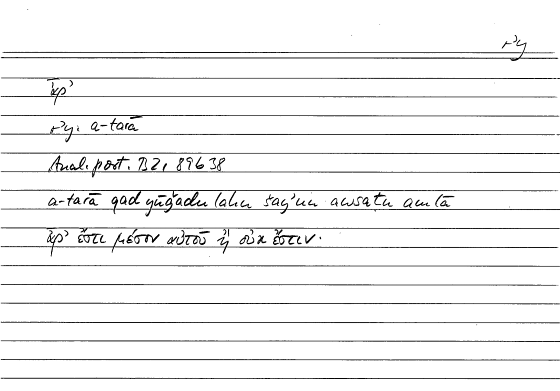 rʾy
ἆρʾ
rʾy. a-tarā
Anal. post. B2, 89b38
a-tarā qad yūǧadu lahu šayʾun awsaṭu am lā
ἆρʾ ἔστι μέσον αὐτοῦ ἢ οὐκ ἔστιν·